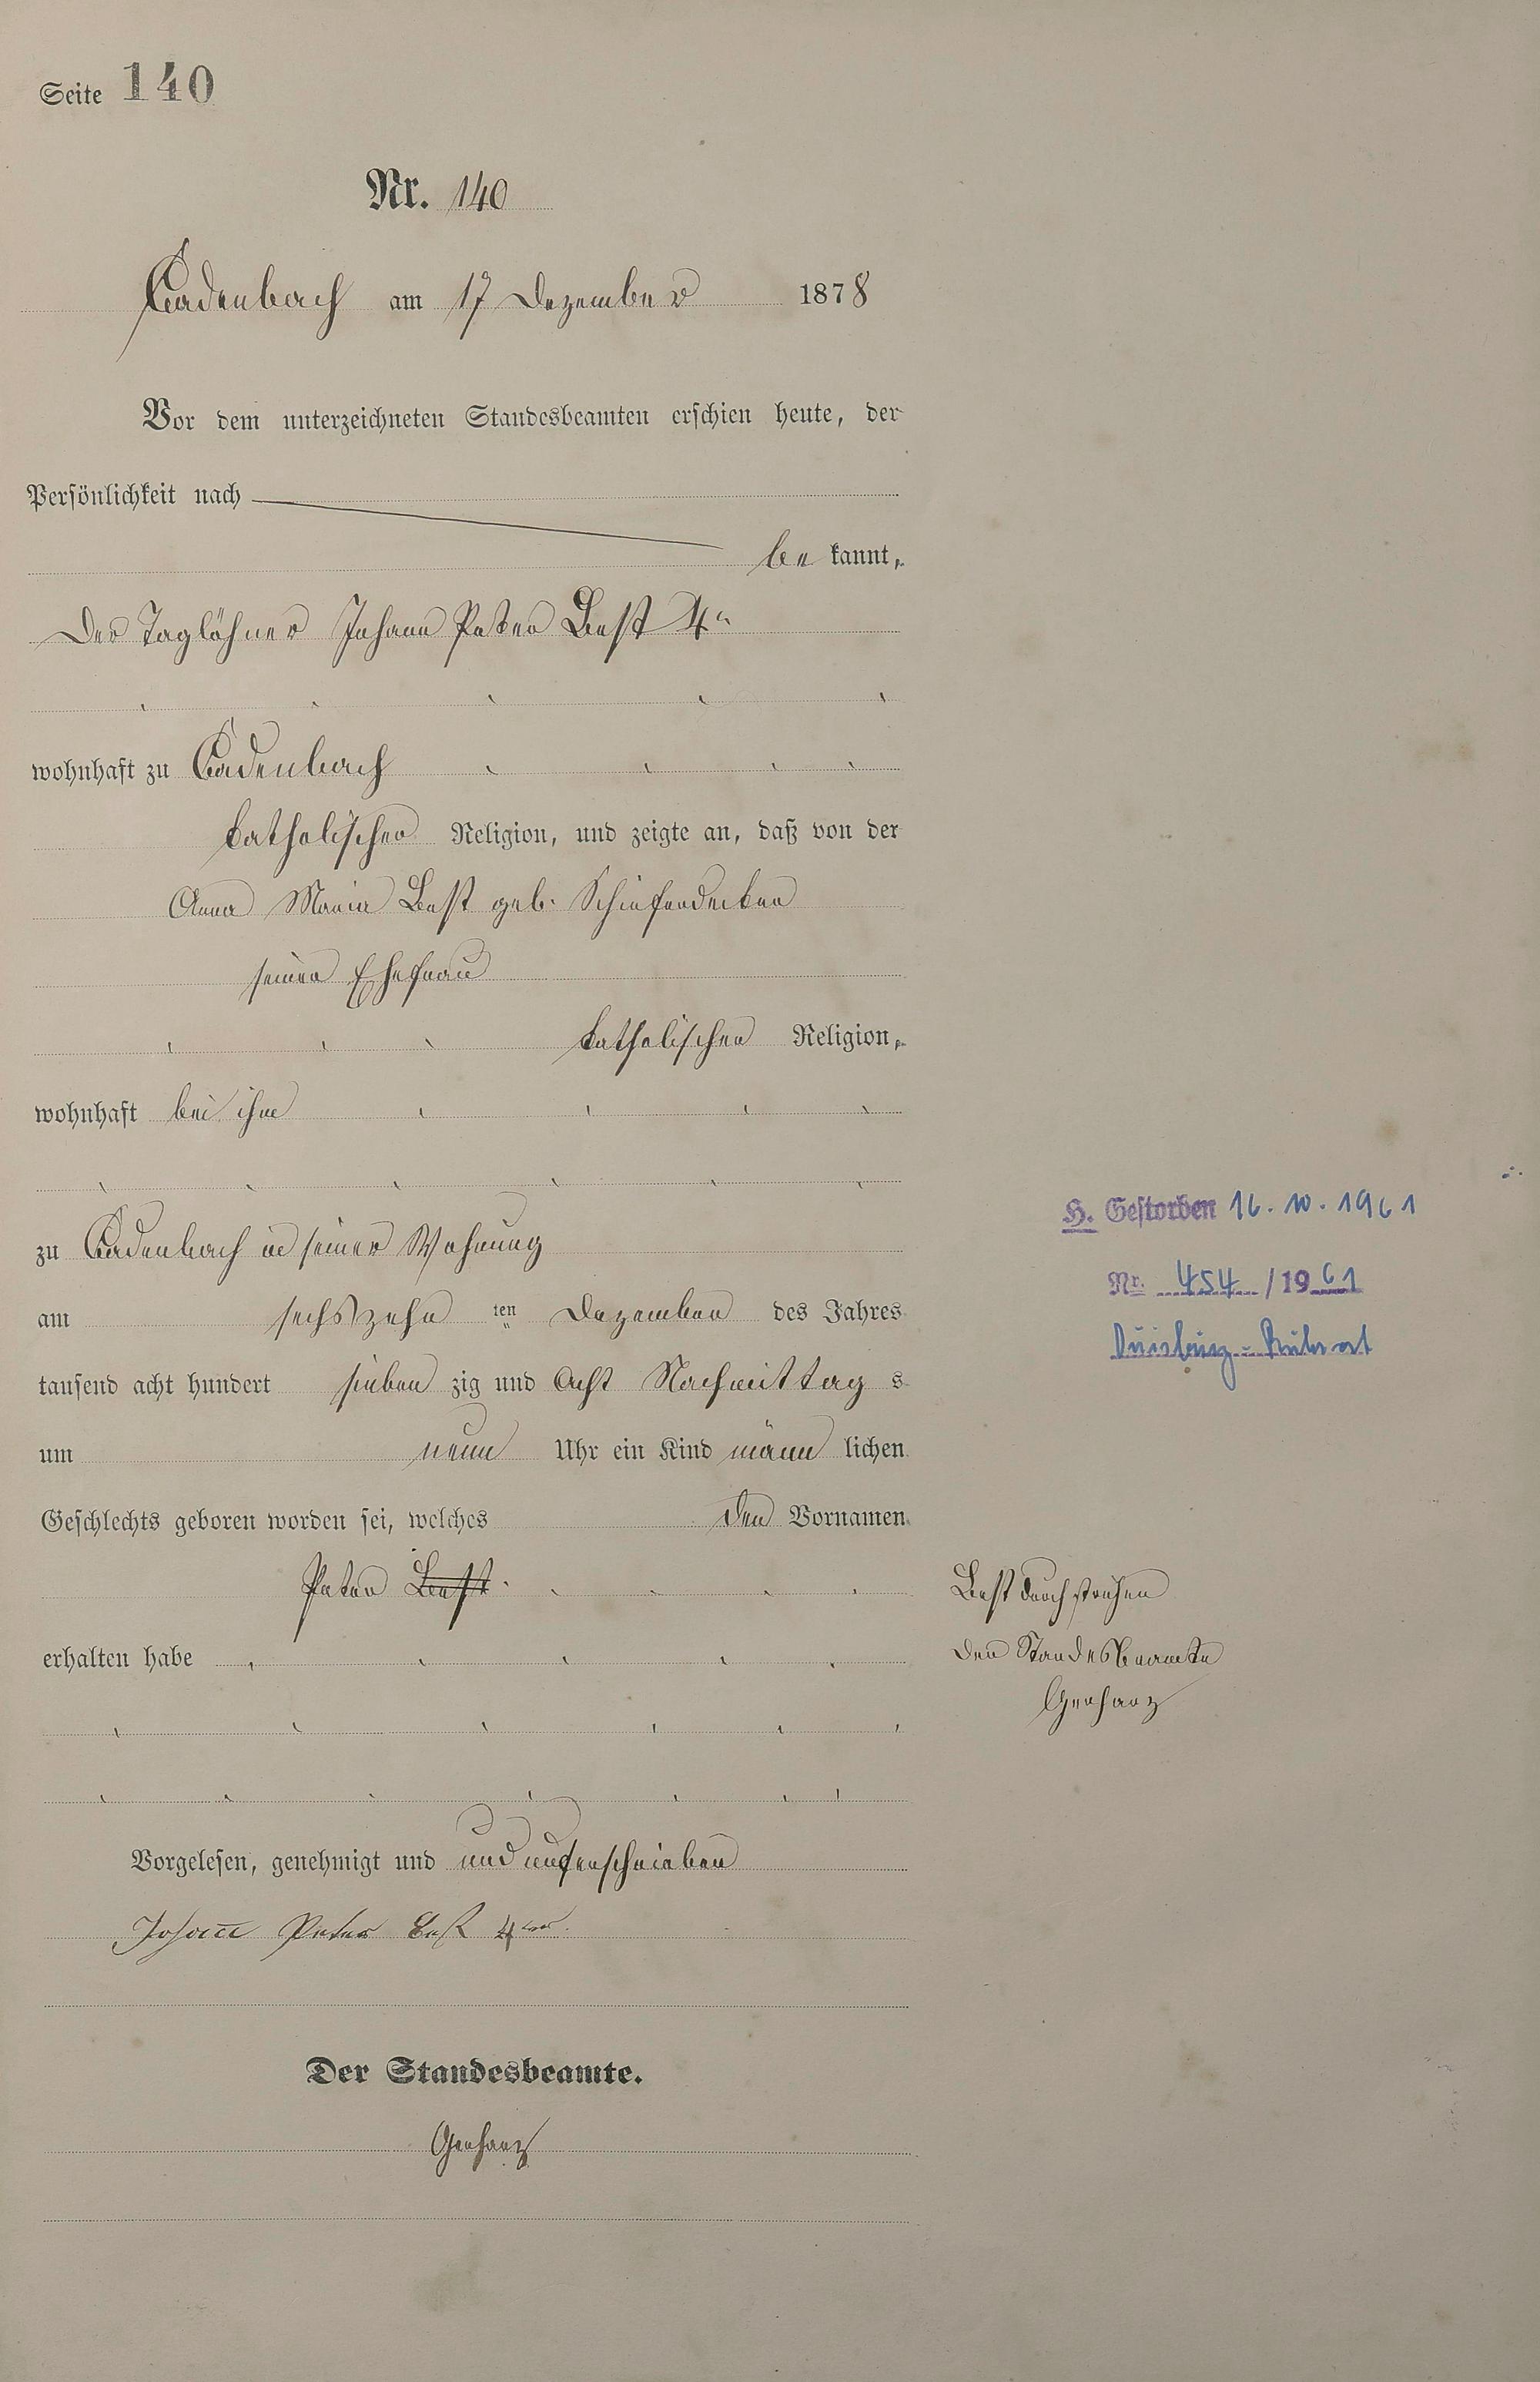 Seite 140
Nr. 140
Cadenbach am 17 Dezember 1878
Vor dem unterzeichneten Standesbeamten erschien heute, der
Persönlichkeit nach
be kannt,
Der Taglöhner Johann Peter Best 4r
wohnhaft zu Cadenbach
katholischer Religion, und zeigte an, daß von der
Anna Maria Best geb. Schieferdecker
seiner Ehefrau
katholischer Religion,
wohnhaft bei ihm
zu Cadenbach in seiner Wohnung
am sechszehn ten Dezember des Jahres
tausend acht hundert sieben zig und acht Nachmittag s
um neun Uhr ein Kind männ lichen
Geschlechts geboren worden sei, welches den Vornamen
Peter Best
erhalten habe
Vorgelesen, genehmigt und und unterschrieben
Johann Peter Best 4ter
Der Standesbeamte.
Gerharz
H. Gestorben 16.10.1961
Nr. 454 / 1961
Duisburg-Ruhrort
Best durchstrichen
der Standesbeamte
Gerharz